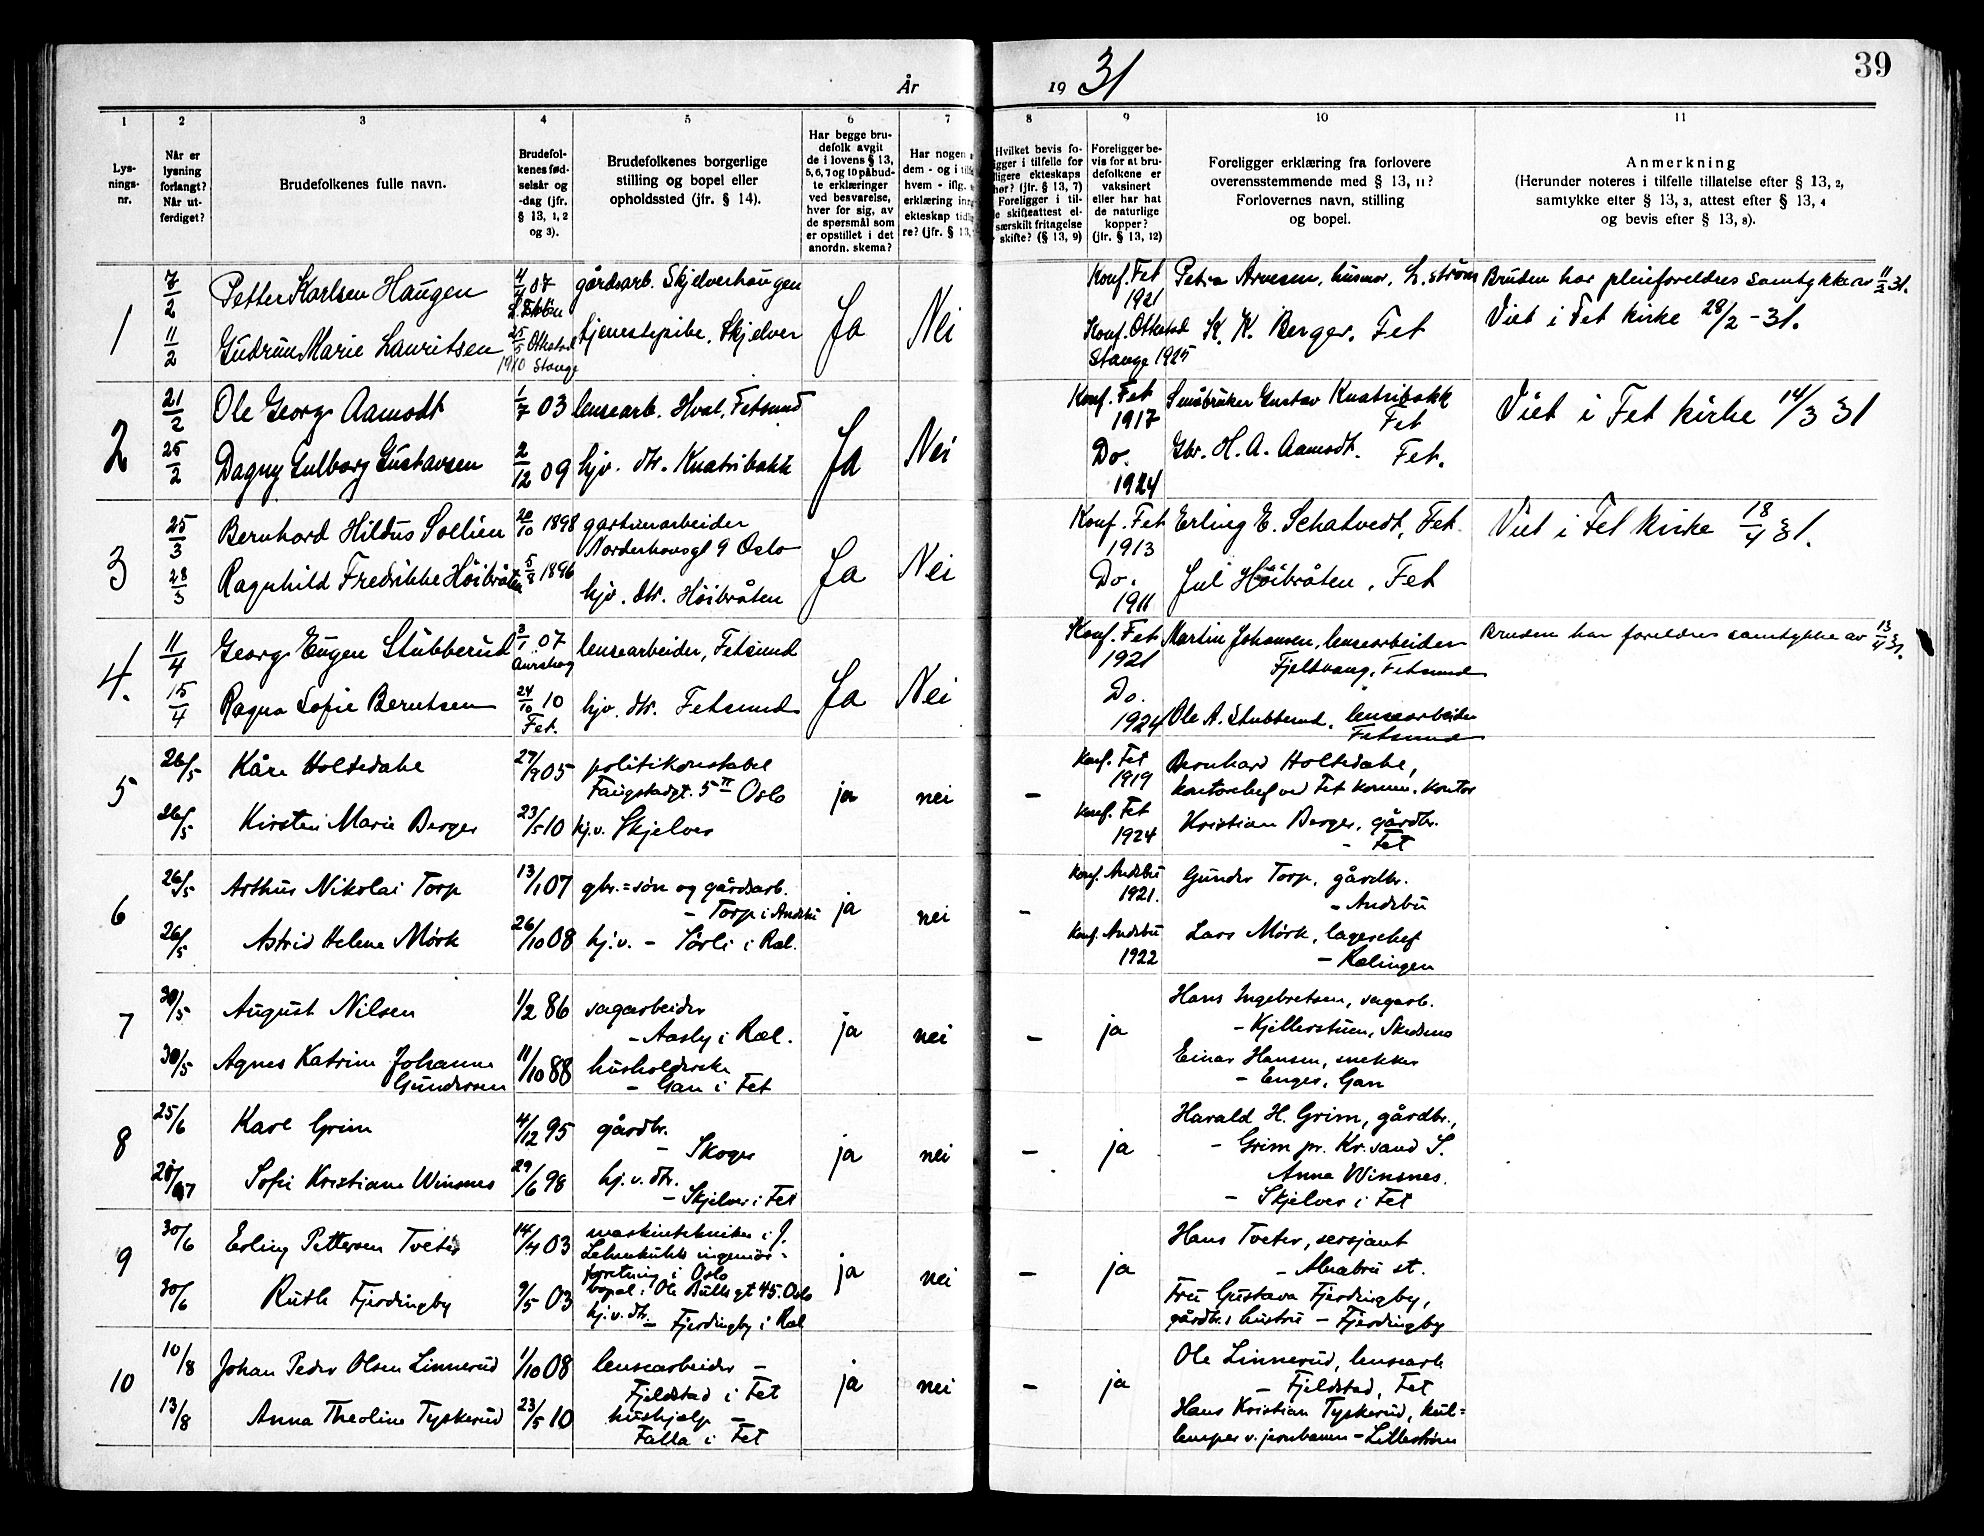 39
År 1931
1 2 3 4 5 6 7 8 9 10 11
Lys-
nings-
nr.
Når er
lysning
forlangt?
Når ut-
ferdiget?
Brudefolkenes fulle navn.
Brudefol-
kenes fød-
selsår og
-dag (jfr.
§ 13, 1, 2
og 3).
Brudefolkenes borgerlige
stilling og bopel eller
opholdssted (jfr. § 14).
Har begge bru-
defolk avgit
de i lovens § 13,
5, 6, 7 og 10 påbud-
te erklæringer
ved besvarelse,
hver for sig, av
de spørsmål som
er opstillet i det
anordn. skema?
Har nogen
dem - og i
hvem - iflg.
erklæring inn
ekteskap tidl
re? (jfr. § 13,
Hvilket bevis fo-
ligger i tilfelle for
ligere ekteskaps
hør? (jfr. § 13, 7)
Foreligger i til-
le skifteattest el-
særskilt fritagelse
skifte? (§ 13, 9)
Foreligger be-
vis for at bru-
defolkene er
vaksinert
eller har hat
de naturlige
kopper?
(jfr. § 13, 12)
Foreligger erklæring fra forlovere
overensstemmende med § 13, 11?
Forlovernes navn, stilling
og bopel.
Anmerkning
(Herunder noteres i tilfelle tillatelse efter § 13, 2,
samtykke efter § 13, 3, attest efter § 13, 4
og bevis efter § 13, 8).
1
7/2 Petter Karlsen Haugen 4/4 07 gårdsarb. Skjelverhaugen Ja Nei Konf. Fet 1921 Petra Arvesen, husmor, L.strøm Bruden har pleieforeldres samtykke av 11/2 31.
11/2 Gudrun Marie Lauritsen 25/5 Ottestad 1910 Stange tjenestepike, Skjelver Konf. Ottestad Stange 1925 K. K. Berger. Fet Viet i Fet kirke 28/2 - 31.
2
21/2 Ole Georg Aamodt 1/7 03 lensearb. Hval, Fetsund Ja Nei Konf. Fet 1917 Småbruker Gustav Knatribakk Fet Viet i Fet kirke 14/3 31
25/2 Dagny Gulborg Gustavsen 2/12 09 hjv. dtr. Knatribakk Do. 1924 Gbr. H. A. Aamodt. Fet.
3
25/3 Bernhard Hildus Sollien 20/10 1898 gartnerarbeider
Norderhovsgt 9 Oslo Ja Nei Konf. Fet 1913 Erling E. Schatvedt, Fet. Viet i Fet kirke 18/4 31.
28/3 Ragnhild Fredrikke Höibråten 5/8 1896 hjv. dtr. Höibråten Do. 1911 Jul Höibråten, Fet
4.
11/4 Georg Eugen Stubberud 3/1 07 Aurskog lensearbeider, Fetsund Ja Nei Konf. Fet 1921 Martin Johansen, lensearbeider
Fjellvang, Fetsund Bruden har foreldres samtykke av 13/4 31.
15/4 Ragna Sofie Berntsen 24/10 10 Fet. hjv. dtr. Fetsund Do. 1924 Ole A. Stubberud, lensearbeider
Fetsund
5
26/5 Kåre Holtedahl 27/9 05 politikonstabel
Faugstadgt. 5 II Oslo ja nei - Konf. Fet 1919 Bernhard Holtedahl,
kontorchef ved Fet komm. kontor
26/5 Kirsten Marie Berger 23/5 10 hj.v. Skjelver Konf. Fet 1924 Kristian Berger, gårdbr.
- Fet
6
26/5 Arthur Nikolai Torp 13/1 07 gbr.=søn og gårdsarb.
- Torp i Andebu ja nei - Konf. Andebu 1921. Gunder Torp, gårdbr.
- Andebu
26/5 Astrid Helene Mørk 26/10 08 hj.v. - Sørli i Ræl. Konf. Andebu 1922 Lars Mørk, lagerchef
- Rælingen
7
30/5 August Nilsen 1/2 86 sagarbeider
- Aasly i Ræl. ja nei - ja Hans Ingebretsen, sagarb.
- Kjellerstuen, Skedsmo
30/5 Agnes Katrine Johanne
Gundersen 11/10 88 husholderske
- Gan i Fet Einar Hansen, snekker
- Enger, Gan
8
25/6 Karl Grim 4/12 95 gårdbr.
- Skoger ja nei - ja Harald H. Grim, gårdbr.,
- Grim pr. Kr.sand S.
28/7 Sofie Kristiane Winsnes 29/6 98 hj.v. dtr.
- Skjelver i Fet Anna Winsnes.
- Skjelver i Fet
9
30/6 Erling Pettersen Tveter 14/4 03 maskintekniker i J.
Lehmkuhls ingeniör-
forretning i Oslo
bopel: Ole Bulls gt 45. Oslo ja nei - ja Hans Tveter, sersjant
- Alnabru st.
30/6 Ruth Fjerdingby 9/5 03 hj.v. dtr.
- Fjerdingby i Ræl Fru Gustava Fjerdingby,
gårdbr.s hustru - Fjerdingby
10
10/8 Johan Peder Olsen Linnerud 1/10 08 lensearbeider -
Fjeldstad i Fet ja nei - ja Ole Linnerud, lensearb
- Fjeldstad, Fet
13/8 Anna Theoline Tyskerud 23/5 10 hushjelp -
Falla i Fet Hans Kristian Tyskerud, kul=
lemper v. jernbanen - Lillestrøm